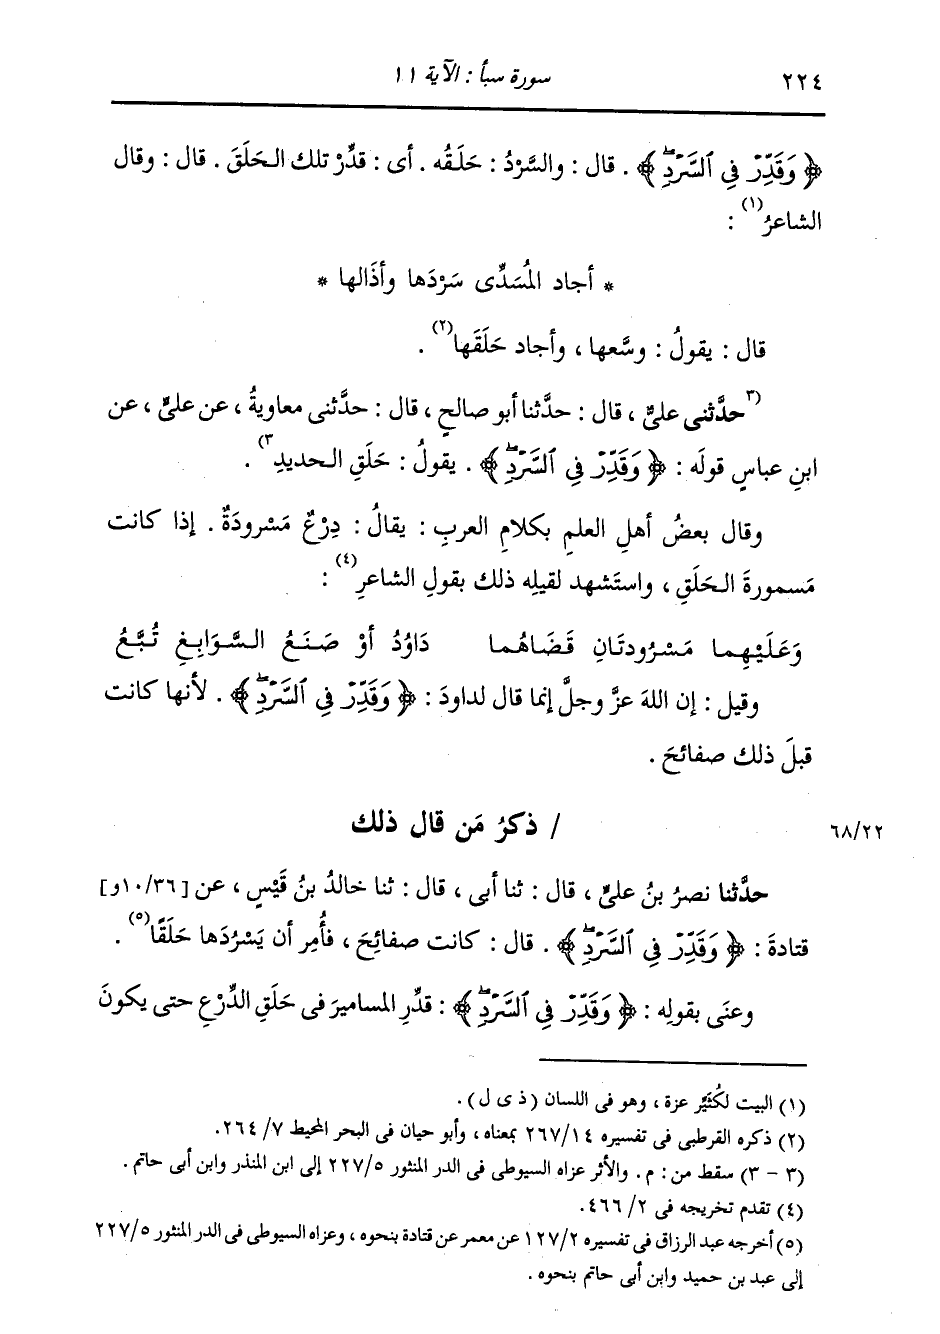 ٢٢٤
سورة سبأ : الآية ١١
﴿ وَقَدِّرْ فِي ٱلسَّرْدِ ﴾ . قال : والسَّرْدُ : حَلَقُه . أى : قدِّرْ تلك الحَلَقَ . قال : وقال
الشاعرُ(١) :
* أجاد المُسَدِّى سَرْدَها وأذَالها *
قال : يقولُ : وسَّعها ، وأجاد حَلَقَها(٢) .
(٣حدَّثنى علىٌّ ، قال : حدَّثنا أبو صالحٍ ، قال : حدَّثنى معاويةُ ، عن علىٍّ ، عن
ابنِ عباسٍ قولَه : ﴿ وَقَدِّرْ فِي ٱلسَّرْدِ ﴾ . يقولُ : حَلَقِ الحديدِ٣) .
وقال بعضُ أهلِ العلمِ بكلامِ العربِ : يقالُ : دِرْعٌ مَسْرودَةٌ . إذا كانت
مَسمورةَ الحَلَقِ ، واستَشهد لقيلِه ذلك بقولِ الشاعرِ(٤) :
وَعَلَيْهِما مَسْرُودتَانِ قَضَاهُما داوُدُ أوْ صَنَعُ السَّوَابِغِ تُبَّعُ
وقيل : إن اللهَ عزَّ وجلَّ إنما قال لداودَ : ﴿ وَقَدِّرْ فِي ٱلسَّرْدِ ﴾ . لأنها كانت
قبلَ ذلك صفائحَ .
/ ذكرُ مَن قال ذلك
٦٨/٢٢
حدَّثنا نصرُ بنُ علىٍّ ، قال : ثنا أبى ، قال : ثنا خالدُ بنُ قَيْسٍ ، عن [١٠/٣٦و]
قتادةَ : ﴿ وَقَدِّرْ فِي ٱلسَّرْدِ ﴾ . قال : كانت صفائحَ ، فأُمِر أن يَسْرُدَها حَلَقًا(٥) .
وعنَى بقولِه : ﴿ وَقَدِّرْ فِي ٱلسَّرْدِ ﴾ : قدِّرِ المساميرَ فى حَلَقِ الدِّرْعِ حتى يكونَ
(١) البيت لكُثَيِّر عزة ، وهو فى اللسان ( ذ ى ل ) .
(٢) ذكره القرطبى فى تفسيره ٢٦٧/١٤ بمعناه ، وأبو حيان فى البحر المحيط ٧/ ٢٦٤.
(٣ - ٣) سقط من : م . والأثر عزاه السيوطى فى الدر المنثور ٢٢٧/٥ إلى ابن المنذر وابن أبى حاتم .
(٤) تقدم تخريجه فى ٢/ ٤٦٦.
(٥) أخرجه عبد الرزاق فى تفسيره ١٢٧/٢ عن معمر عن قتادة بنحوه ، وعزاه السيوطى فى الدر المنثور ٢٢٧/٥
إلى عبد بن حميد وابن أبى حاتم بنحوه .